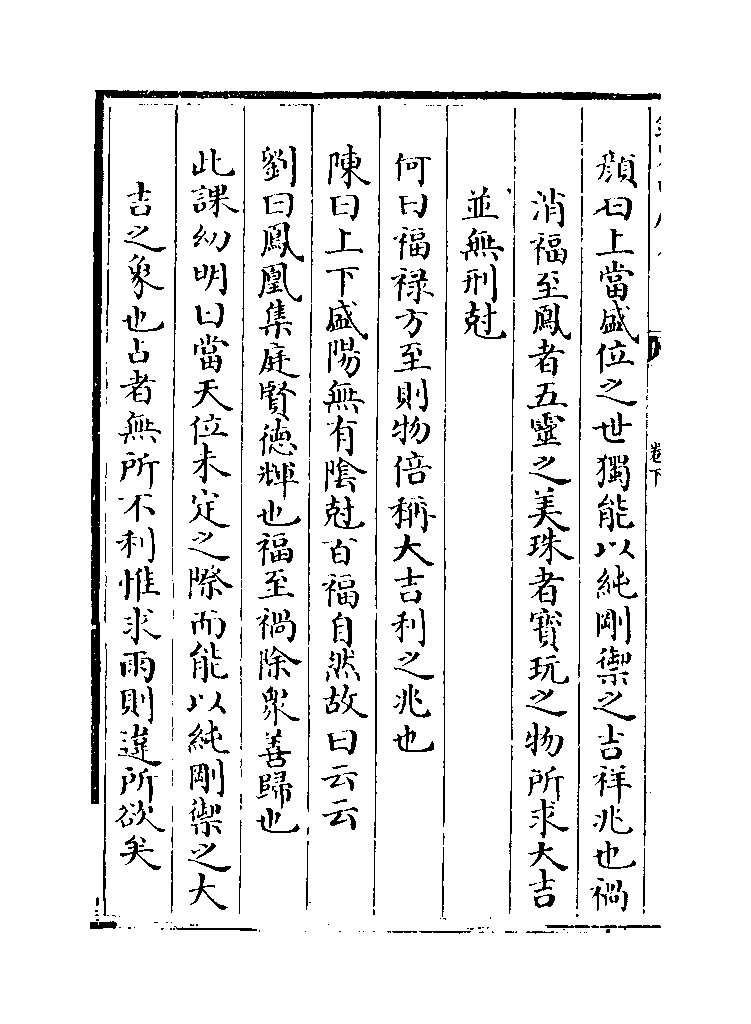 顔曰上當盛位之世獨能以純剛禦之吉祥兆也禍
消福至鳳者五靈之美珠者寳玩之物所求大吉
並無刑尅
何曰福禄方至則物倍稱大吉利之兆也
陳曰上下盛陽無有隂尅百福自然故曰云云
劉曰鳳凰集庭賢徳輝也福至禍除衆善歸也
此課幼明曰當天位未定之際而能以純剛禦之大
吉之象也占者無所不利惟求雨則違所欲矣
卷下